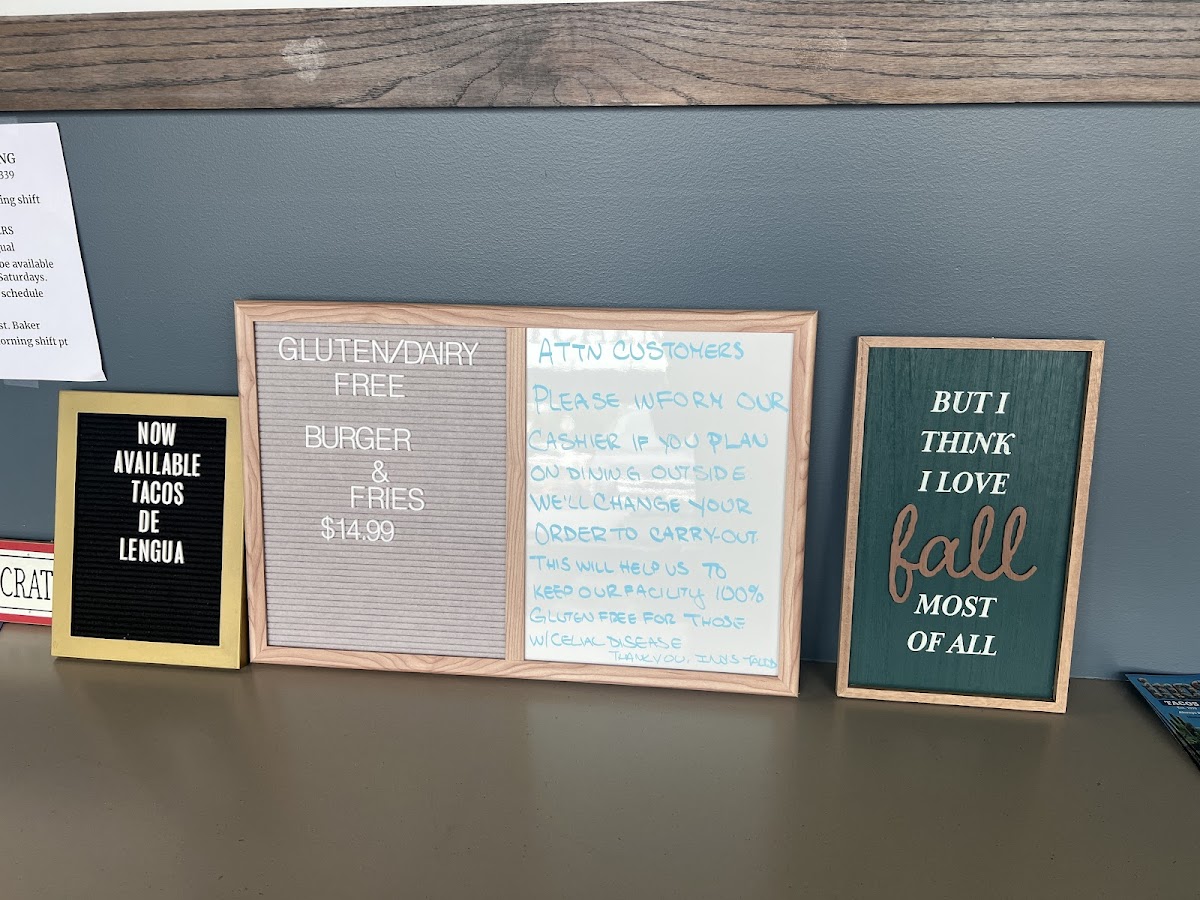 NG
339
ing shift
RS
qual
be available
Saturdays.
schedule
st. Baker
orning shift pt
CRAT
NOW
AVAILABLE
TACOS
DE
LENGUA
GLUTEN/DAIRY
FREE
BURGER
&
FRIES
$14.99
ATTN CUSTOMERS
PLEASE INFORM OUR
CASHIER IF YOU PLAN
ON DINING OUTSIDE
WE'LL CHANGE YOUR
ORDER TO CARRY-OUT.
THIS WILL HELP US TO
KEEP OUR FACILITY 100%
GLUTEN FREE FOR THOSE
W/CELIAC DISEASE
THANK YOU,
BUT I
THINK
I LOVE
fall
MOST
OF ALL
TACOS